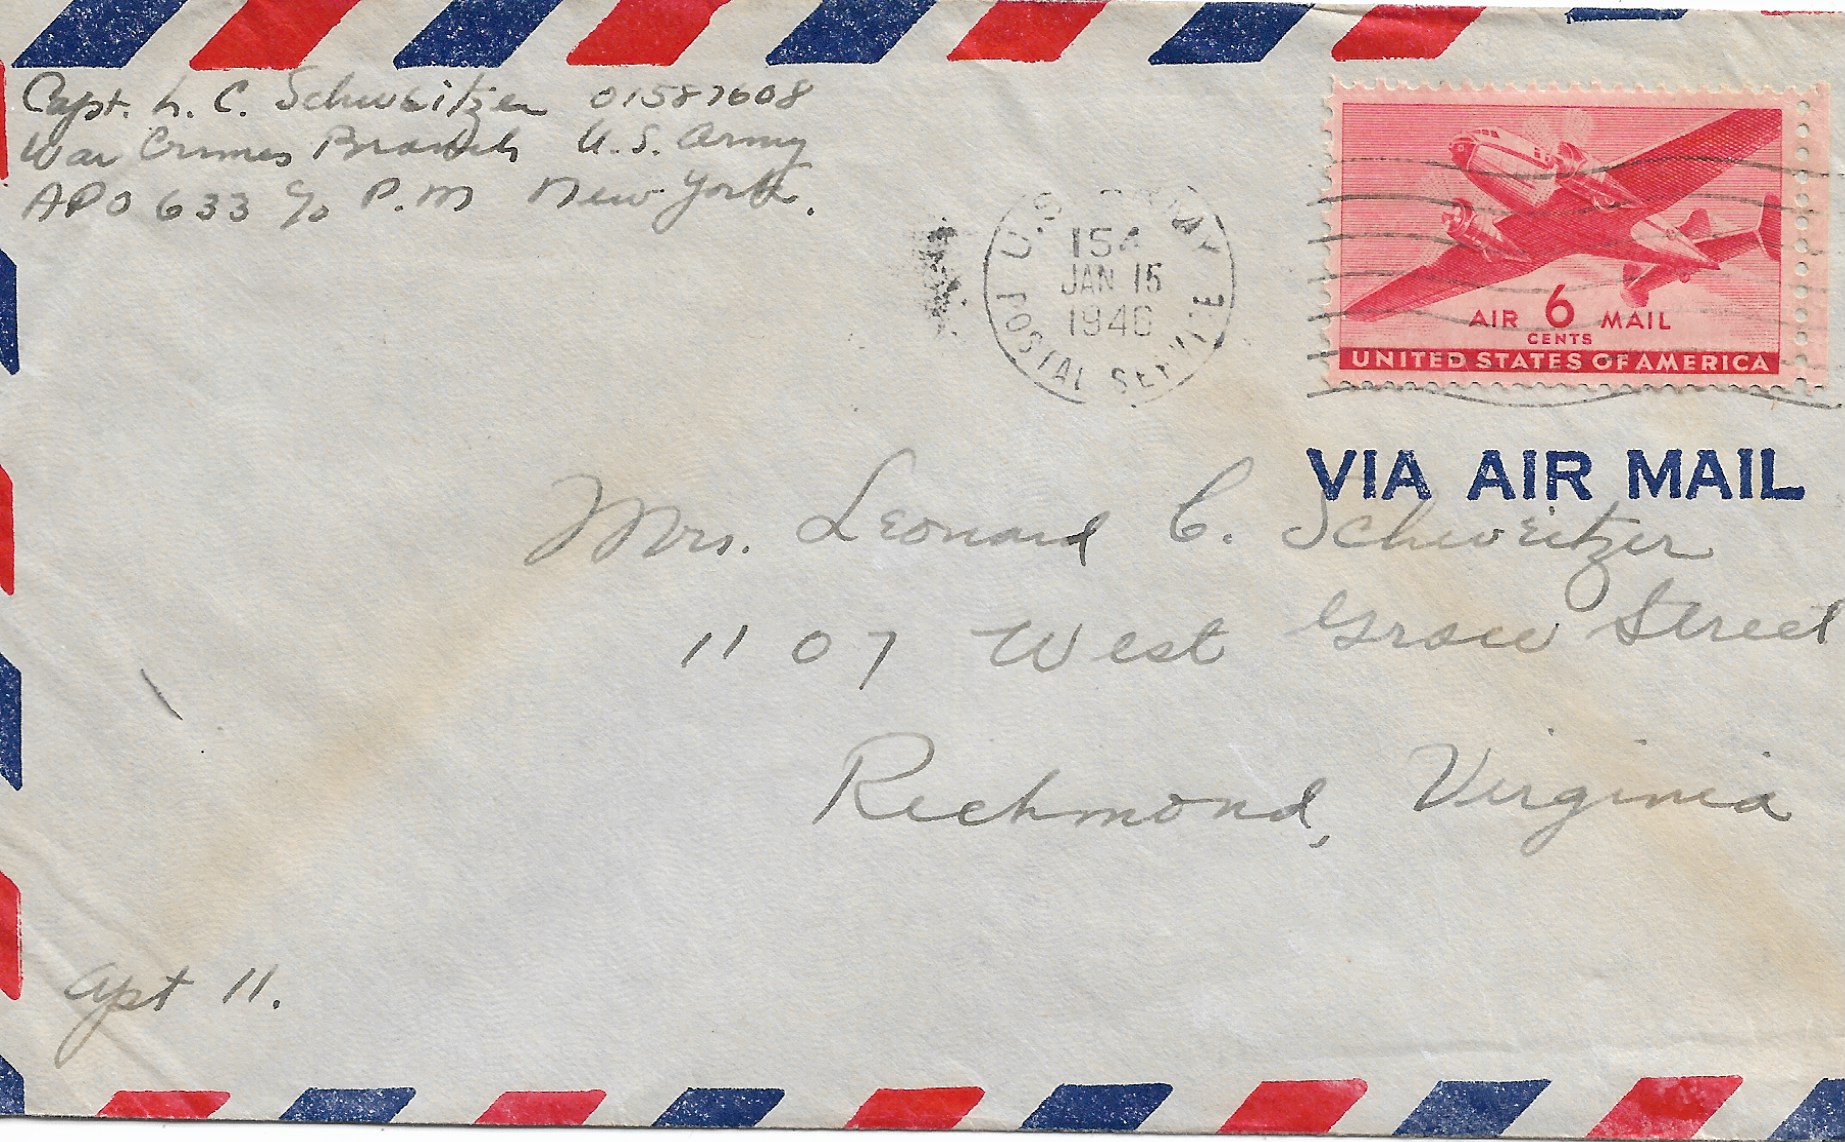 Capt. L. C. Schweitzer 01587608
War Crimes Branch U.S. Army
APO 633 c/o P.M New York.
U.S. ARMY
154
JAN 15
1946
POSTAL SERVICE
AIR 6 MAIL
CENTS
UNITED STATES OF AMERICA
VIA AIR MAIL
Mrs. Leonard C. Schweitzer
1107 West Grace Street
Richmond, Virginia
Apt 11.